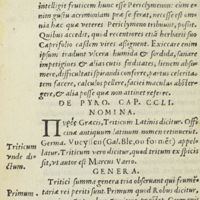 intelligit fruticem hunc esse Periclymenum: cùm en
nim gustu acrimoniam præ se ferat, necesse est omni
nia hac que Periclymeno tribuunt, posse.
Quibus accedit, quòd recentes etiã herbarij suo
Caprifolio eastdem vires assignent. Exiccare enim
ipsum tradunt vlcera humida & sordida, sanare
impetigines, & alias cutis fœditates, lienem absu-
mere, difficultati spirandi conferre, partus celerita
tem facere, calculū pellere, faciei maculas abster-
gere, & alia posse quæ non attinet referre.
DE PYRO. CAP. CCLI.
NOMINA.
Πυρὸς Græcis, Triticum Latinis dicitur. Offi
cinæ antiquum latinum nomen retinuerunt.
Germa. Vueyssen (Gal. Ble, ou forment) appel-
latur. Triticum verò dicitur, quòd tritum ex spicis
sit, vt autor est Marcus Varro.
Triticum
vnde di-
ctum.
GENERA.
Tritici summa genera tria obseruant qui frumē-
taria rei periti sunt Primum quod Robus dicitur,
Primum.